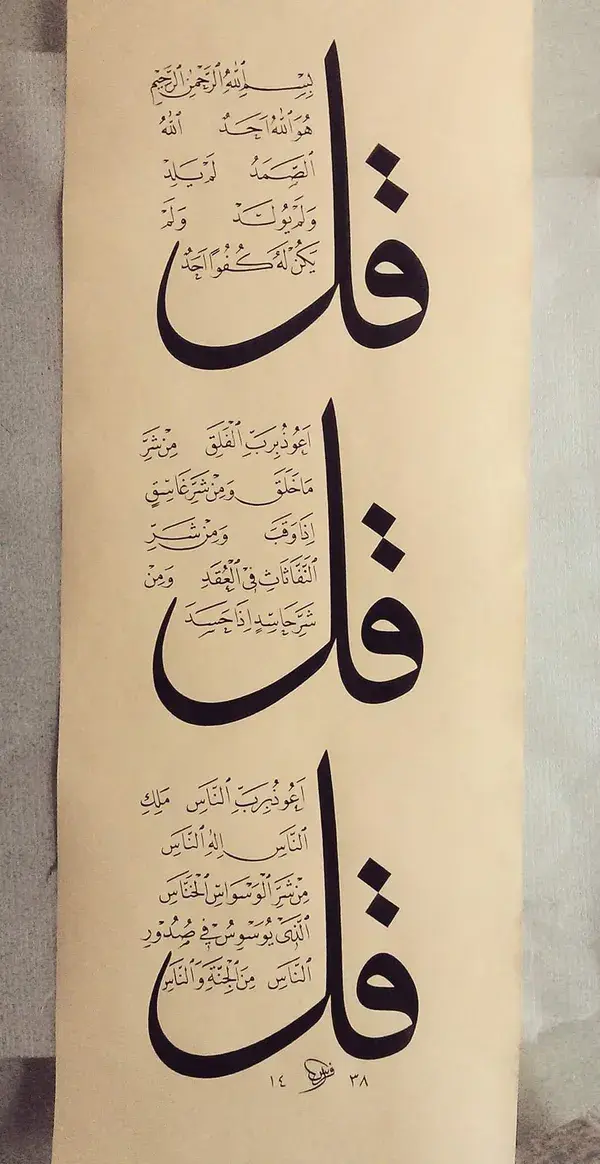 بِسْمِ ٱللّٰهِ ٱلرَّحْمٰنِ ٱلرَّحِيمِ
قل
هُوَ ٱللّٰهُ اَحَدٌ ٱللّٰهُ
ٱلصَّمَدُ لَمْ يَلِدْ
وَلَمْ يُولَدْ وَلَمْ
يَكُنْ لَهُ كُفُوًا اَحَدٌ
قل
اَعُوذُ بِرَبِّ ٱلْفَلَقِ مِنْ شَرِّ
مَا خَلَقَ وَمِنْ شَرِّ غَاسِقٍ
اِذَا وَقَبَ وَمِنْ شَرِّ
ٱلنَّفَّاثَاتِ فِي ٱلْعُقَدِ وَمِنْ
شَرِّ حَاسِدٍ اِذَا حَسَدَ
قل
اَعُوذُ بِرَبِّ ٱلنَّاسِ مَلِكِ
ٱلنَّاسِ اِلٰهِ ٱلنَّاسِ
مِنْ شَرِّ ٱلْوَسْوَاسِ ٱلْخَنَّاسِ
ٱلَّذِي يُوَسْوِسُ فِي صُدُورِ
ٱلنَّاسِ مِنَ ٱلْجِنَّةِ وَٱلنَّاسِ
١٤ ٣٨